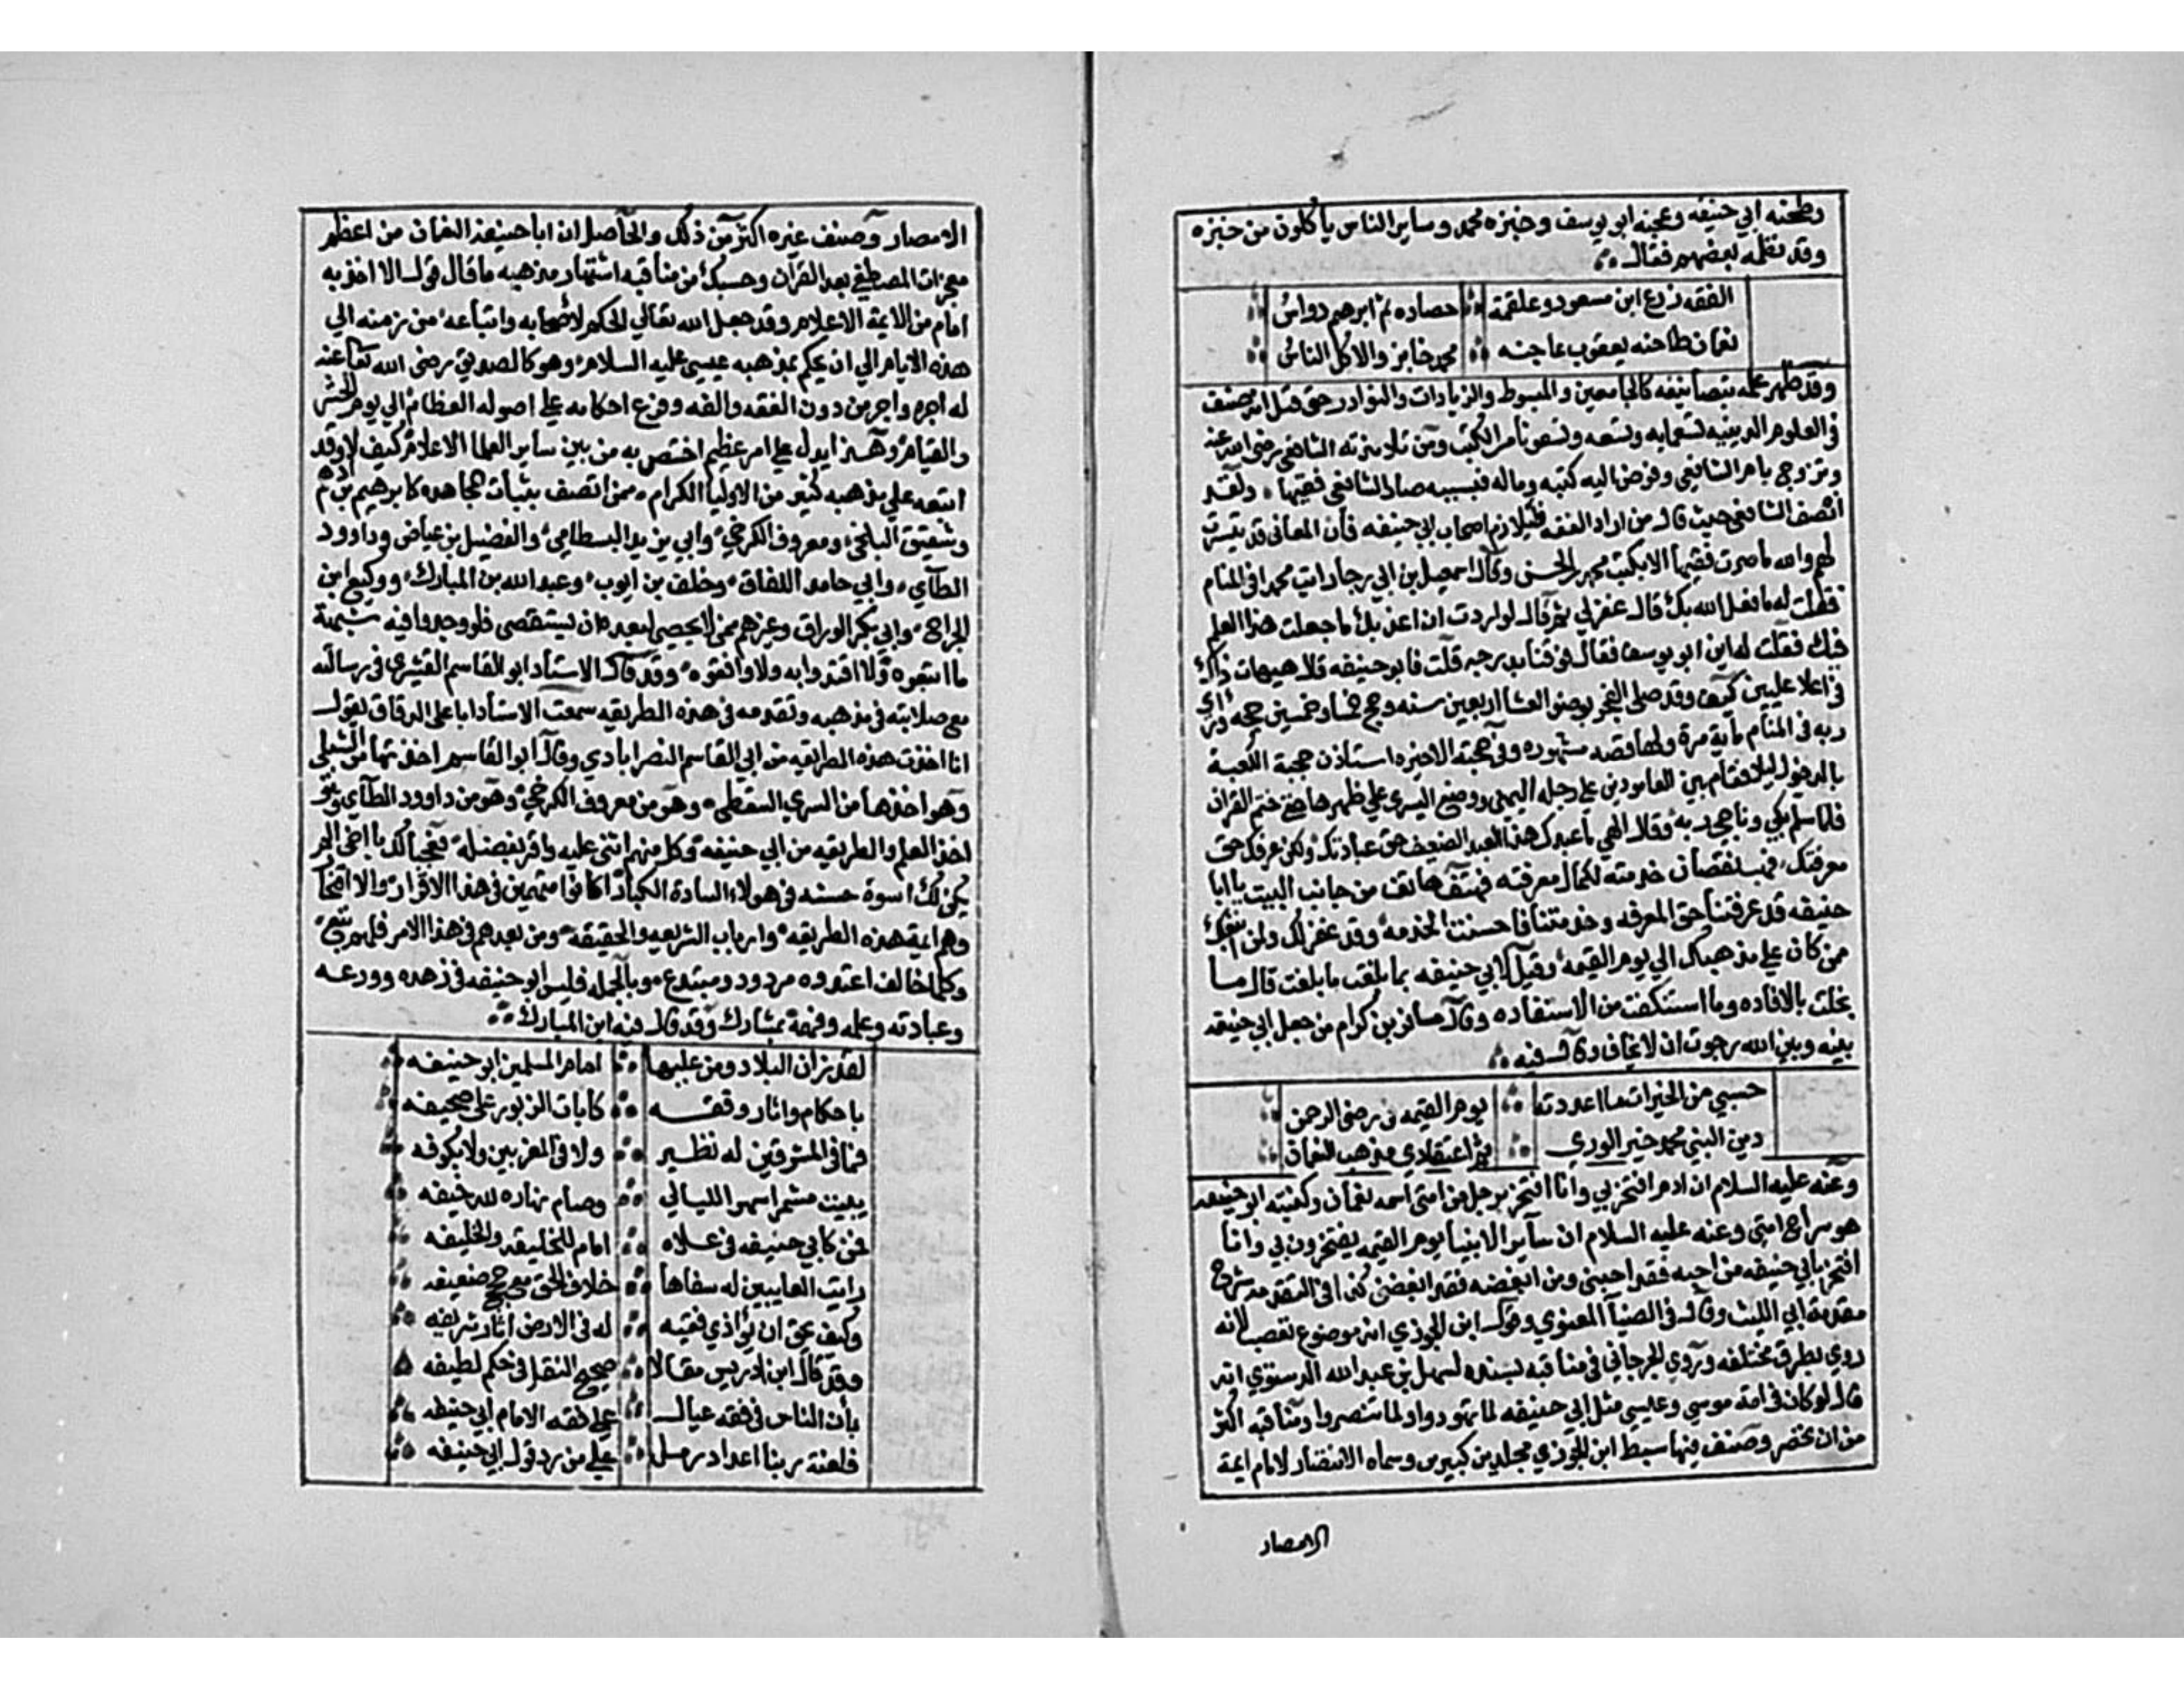 وطحنه ابي حنيفه وعجنه ابو يوسف وخبزه محمد وساير الناس ياكلون من خبزه
وقد نظمه بعضهم فقال
الفقه زرع ابن مسعود وعلقمة حصاده ثم ابرهيم دواس
نعمان طاحنه يعقوب عاجنه محمد خابز والاكل الناس
وقد ظهر علمه بتصانيفه كالجامعين والمبسوط والزيادات والنوادر حتى قيل انه صنف
في العلوم الدينيه تسعمايه وتسعه وتسعون من الكتب ومن تلامذته الشافعي رضى الله عنه
وتزوج بام الشافعي وفوض اليه كتبه وماله فبسببه صار الشافعي فقيها ولقد
انصف الشافعي حيث قال من اراد الفقه فليلازم اصحاب ابي حنيفه فان المعاني قد تيسرت
لهم والله ما صرت فقيها الا بكتب محمد بن الحسن وقال اسمعيل بن ابي رجا رايت محمدا في المنام
فقلت له ما فعل الله بك قال غفر لي ثم قال لو اردت ان اعذبك ما جعلت هذا العلم
فيك فقلت له اين ابو يوسف فقال فوقنا بدرجه قلت فابو حنيفه قال هيهات ذاك
في اعلا عليين كيف وقد صلى الفجر بوضو العشا اربعين سنه وحج خمسا وخمسين حجه وراي
ربه في المنام ماية مرة ولها قصه مشهوره وفي حجته الاخيره استاذن حجبة الكعبة
بالدخول ليلا فقام بين العامودين على رجله اليمنى ووضع اليسرى على ظهرها حتى ختم القران
فلما سلم بكى وناجى ربه وقال الهي ما عبدك هذا العبد الضعيف حق عبادتك ولكن عرفك حق
معرفتك فهب نقصان خدمته لكمال معرفته فهتف هاتف من جانب البيت يا ابا
حنيفه قد عرفتنا حق المعرفه وخدمتنا فاحسنت الخدمه وقد غفر لك ولمن اتبعك
ممن كان على مذهبك الي يوم القيمه وقيل لابي حنيفه بما بلغت ما بلغت قال ما
بخلت بالافاده وما استنكفت من الاستفاده وقال مسافر بن كرام من جعل ابي حنيفه
بينه وبين الله رجوت ان لا يخاف وقال فيه
حسبي من الخيرات ما اعددته يوم القيمه في رضى الرحمن
دين النبي محمد خير الوري ثم اعتقادي مذهب النعمان
وعنه عليه السلام ان ادم افتخر بي وانا افتخر برجل من امتي اسمه نعمان وكنيته ابو حنيفه
هو سراج امتي وعنه عليه السلام ان ساير الانبيا يوم القيمه يفتخرون بي وانا
افتخر بابي حنيفه من احبه فقد احبني ومن ابغضه فقد ابغضني كذا في التقدمه شرح
مقدمة ابي الليث وقال في الضيا المعنوي وقول ابن الجوزي انه موضوع تعصب لانه
روي بطرق مختلفه وروي الجرجاني في مناقبه بسنده لسهل بن عبد الله التستري انه
قال لو كان في امة موسى وعيسى مثل ابي حنيفه لما تهودوا ولما تنصروا ومناقبه اكثر
من ان تحصر وصنف فيها سبط ابن الجوزي مجلدين كبيرين وسماه الانتصار لامام ايمة
الامصار
الامصار وصنف غيره اكثر من ذلك والحاصل ان ابا حنيفة النعمان من اعظم
معجزات المصطفى بعد القران وحسبك من مناقبه اشتهار مذهبه ما قال قول الا اخذ به
امام من الايمة الاعلام وقد جعل الله تعالى الحكم لاصحابه واتباعه من زمنه الي
هذه الايام الي ان يحكم بمذهبه عيسى عليه السلام وهو كالصديق رضى الله تعا عنه
له اجره واجر من دون الفقه والفه وفرع احكامه على اصوله العظام الي يوم الحشر
والقيام وهذا يدل على امر عظيم اختص به من بين ساير العلما الاعلام كيف لا وقد
اتبعه على مذهبه كثير من الاوليا الكرام ممن اتصف بثبات المجاهده كابرهيم بن ادهم
وشقيق البلخي ومعروف الكرخي وابي يزيد البسطامي والفضيل بن عياض وداوود
الطآي وابي حامد اللفاف وخلف بن ايوب وعبد الله بن المبارك ووكيع ابن
الجراح وابي بكر الوراق وغيرهم ممن لا يحصى لبعده ان يستقصى فلو وجدوا فيه شبهة
ما اتبعوه ولا اقتدوا به ولا وافقوه وقد قال الاستاد ابو القاسم القشيري في رسالته
مع صلابته في مذهبه وتقدمه في هذه الطريقه سمعت الاستاد ابا على الدقاق يقول
انا اخذت هذه الطريقه من ابي القاسم النصرابادي وقال ابو القاسم اخذتها من الشبلي
وهو اخذها من السري السقطي وهو من معروف الكرخي وهو من داوود الطآي وهو
اخذ العلم والطريقه من ابي حنيفه وكل منهم اثنى عليه واقر بفضله فعجبا لك يا اخي الم
يكن لك اسوة حسنه في هولاء السادة الكبار اكانوا متهمين في هذا الاقرار والافتخار
وهم ايمة هذه الطريقه وارباب الشريعه والحقيقه ومن بعدهم في هذا الامر فلهم تبع
وكلما خالف اعتدوه مردود ومبتدع وبالجمله فليس ابو حنيفه في زهده وورعه
وعبادته وعلمه وفهمه بمشارك وقد قال فيه ابن المبارك
لقد زان البلاد ومن عليها امام المسلمين ابو حنيفه
باحكام واثار وفقه كايات الزبور على صحيفه
فما في المشرقين له نظير ولا في المغربين ولا بكوفه
يبيت مشمرا سهر الليالي وصام نهاره لله خيفه
فمن كابي حنيفه في علاه امام للخليقه والخليفه
رايت العايبين له سفاها خلاف الحق مع حجج ضعيفه
وكيف يحق ان يؤذي فقيه له في الارض اثار شريفه
وقد قال ابن ادريس مقالا صحيح النقل في حكم لطيفه
بان الناس في فقه عيال على فقه الامام ابي حنيفه
فلعنة ربنا اعداد رمل على من رد قول ابي حنيفه